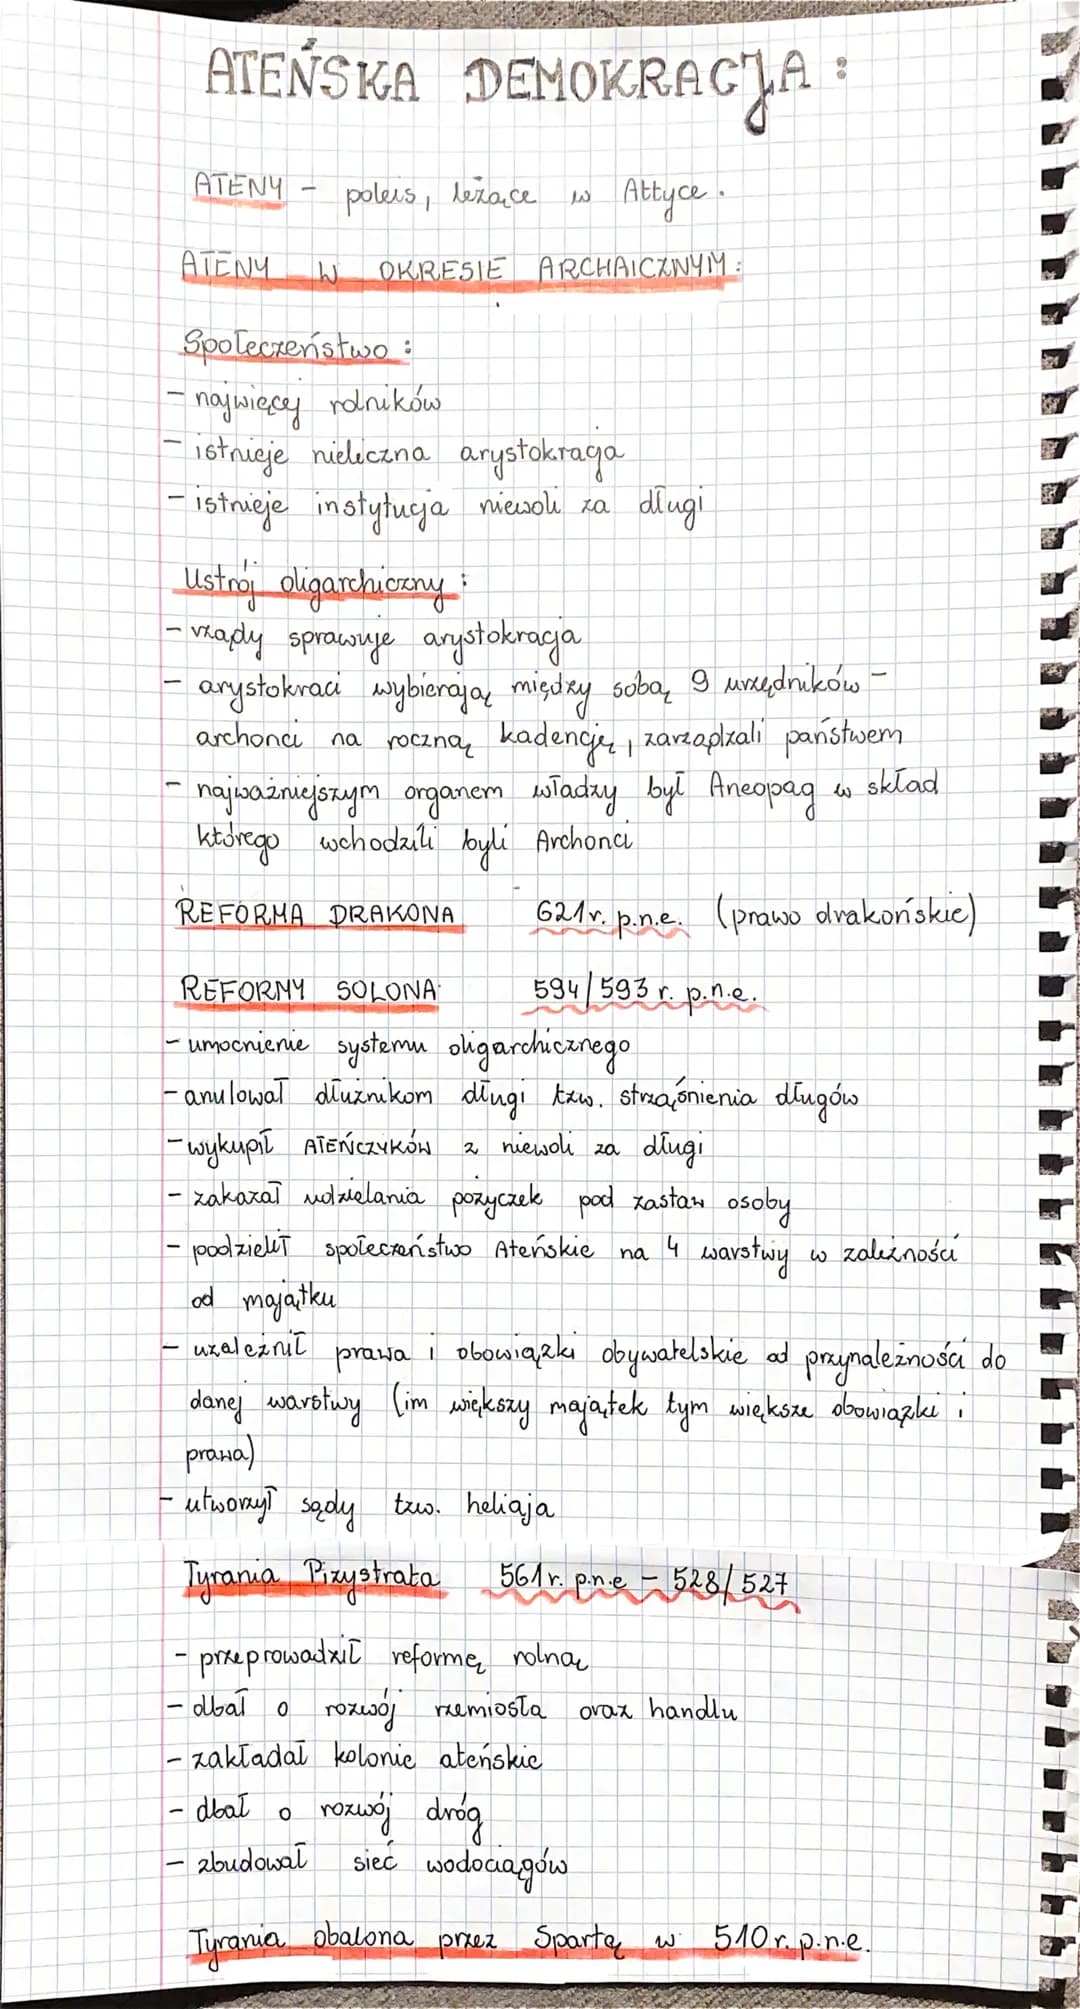 ATEŃSKA DEMOKRACJA :
ATENY - poleis, leżące w Attyce.
ATENY W OKRESIE ARCHAICZNYM:
Społeczeństwo :
- najwięcej rolników
- istnieje nieliczna arystokracja
- istnieje instytucja niewoli za długi
Ustrój oligarchiczny :
- rządy sprawuje arystokracja
- arystokraci wybierają między sobą 9 urzędników -
archonci na roczną kadencję, zarządzali państwem
- najważniejszym organem władzy był Aneopag w skład
którego wchodzili byli Archonci
REFORMA DRAKONA 621r. p.n.e. (prawo drakońskie)
REFORMY SOLONA 594/593 r. p.n.e.
- umocnienie systemu oligarchicznego
- anulował dłużnikom długi tzw. strząśnienia długów
- wykupił ATEŃCZYKÓW z niewoli za długi
- zakazał udzielania pożyczek pod zastaw osoby
- podzielił społeczeństwo Ateńskie na 4 warstwy w zależności
od majątku
- uzależnił prawa i obowiązki obywatelskie od przynależności do
danej warstwy (im większy majątek tym większe obowiązki i
prawa)
- utworzył sądy tzw. heliaja
Tyrania Pizystrata 561r. p.n.e - 528/527
- przeprowadził reformę rolną
- dbał o rozwój rzemiosła oraz handlu
- zakładał kolonie ateńskie
- dbał o rozwój dróg
- zbudował sieć wodociągów
Tyrania obalona przez Spartę w 510r. p.n.e.